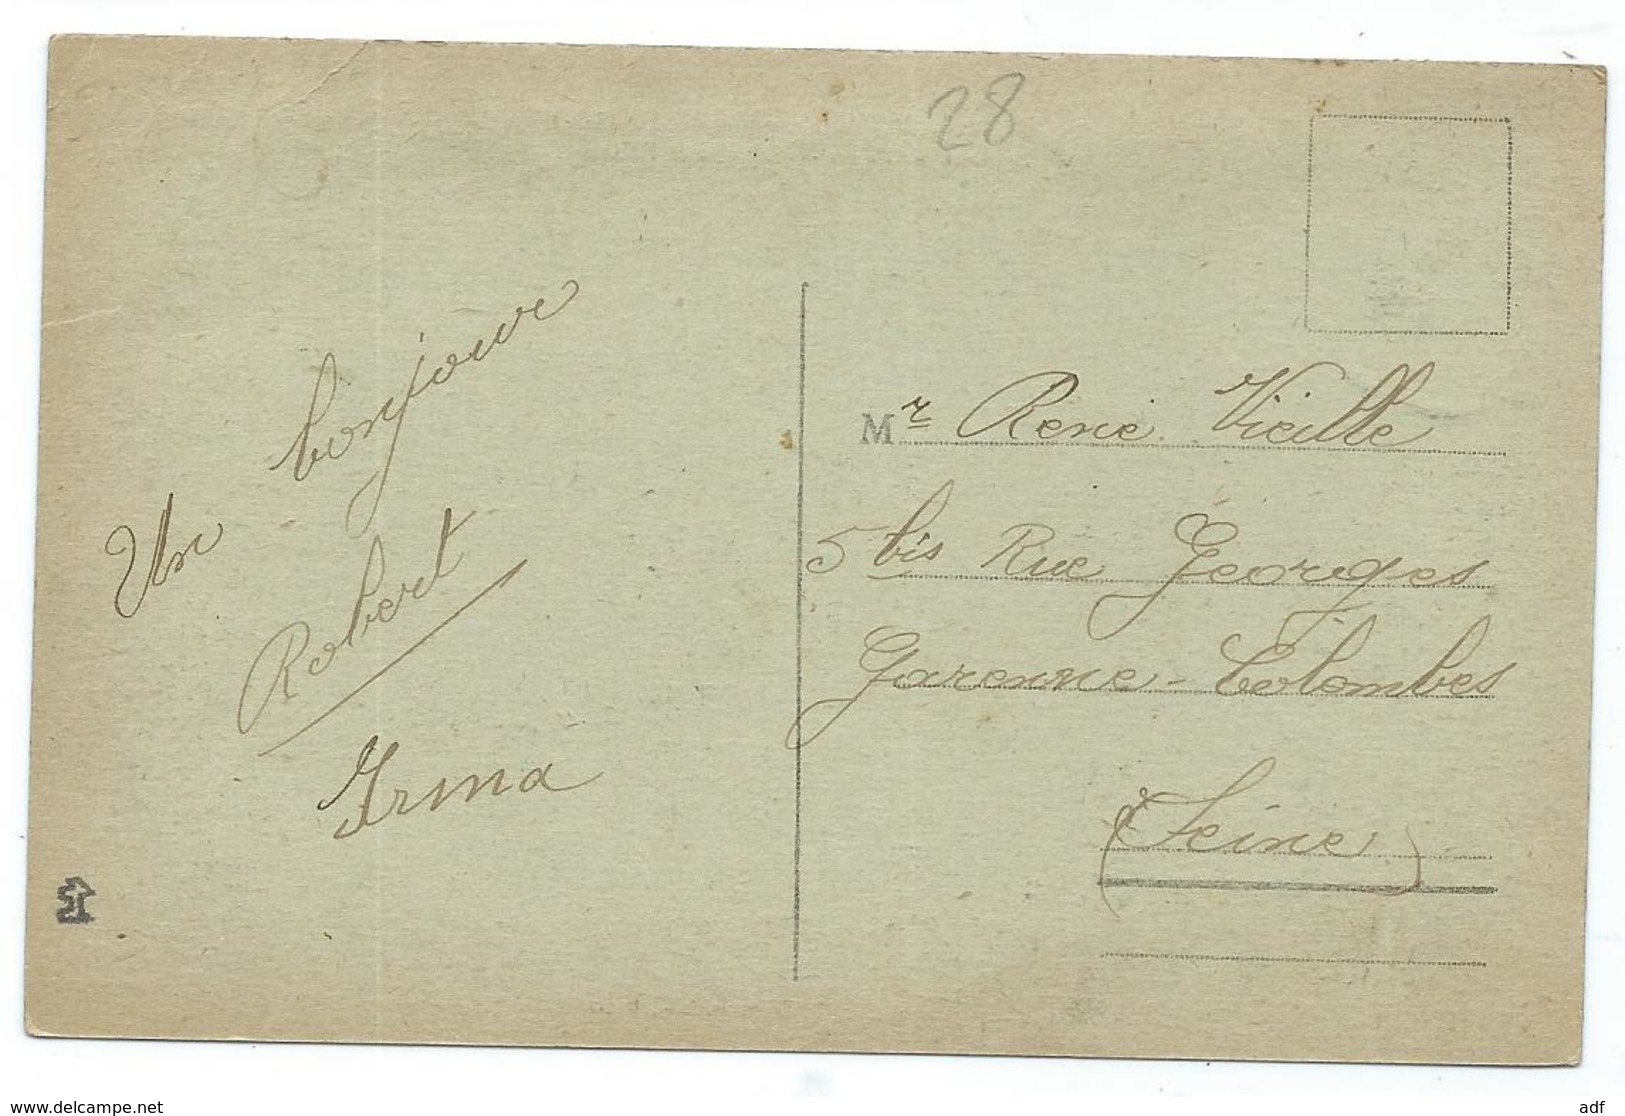 28
Un bonjour
Robert
Irma
Mr René Vieille
5 bis Rue Georges
Garenne-Colombes
(Seine)
www.delcampe.net
adf